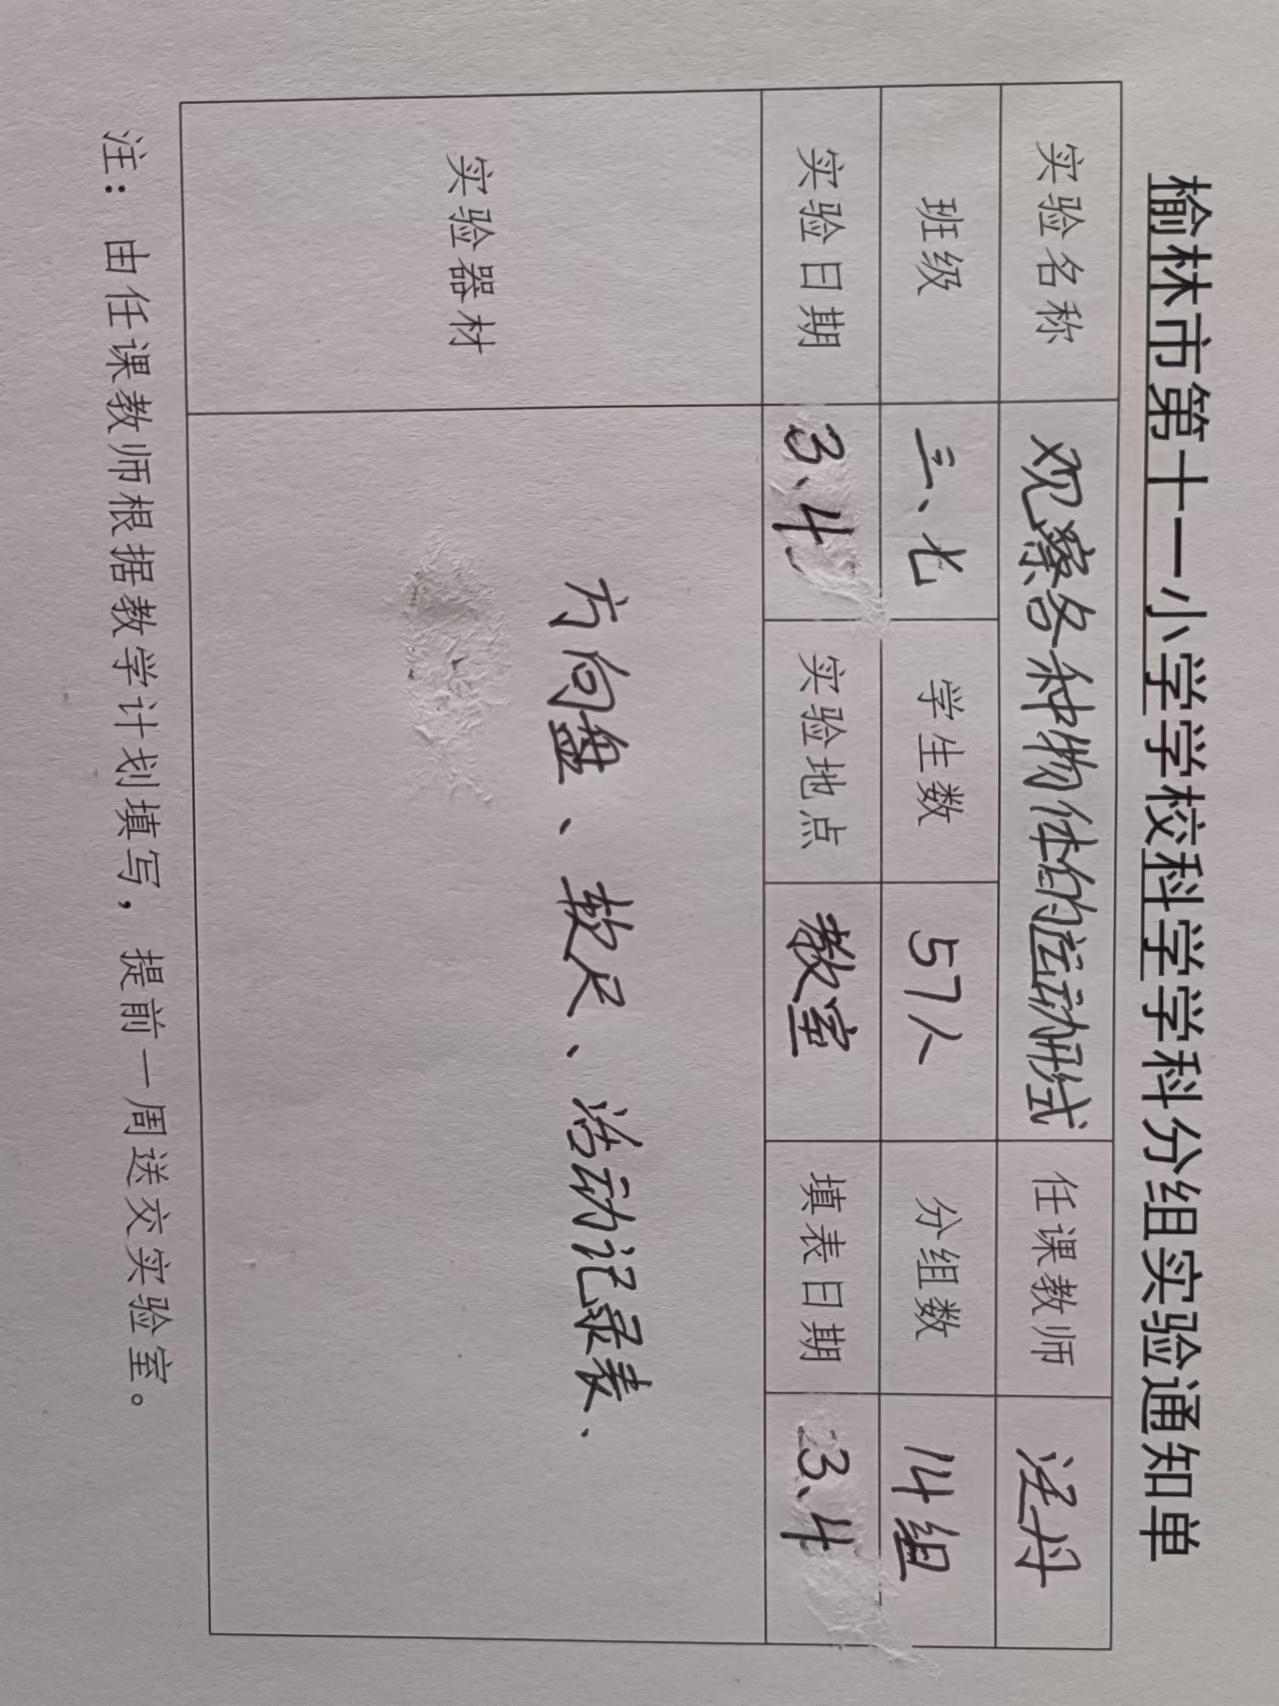 榆林市第十一小学学校科学学科分组实验通知单
实验名称 观察各种物体的运动形式 任课教师
班级 三、七 学生数 57人 分组数 14组
实验日期 3、4 实验地点 教室 填表日期 3、4
实验器材 方向盘、软尺、活动记录表.
注：由任课教师根据教学计划填写，提前一周送交实验室。